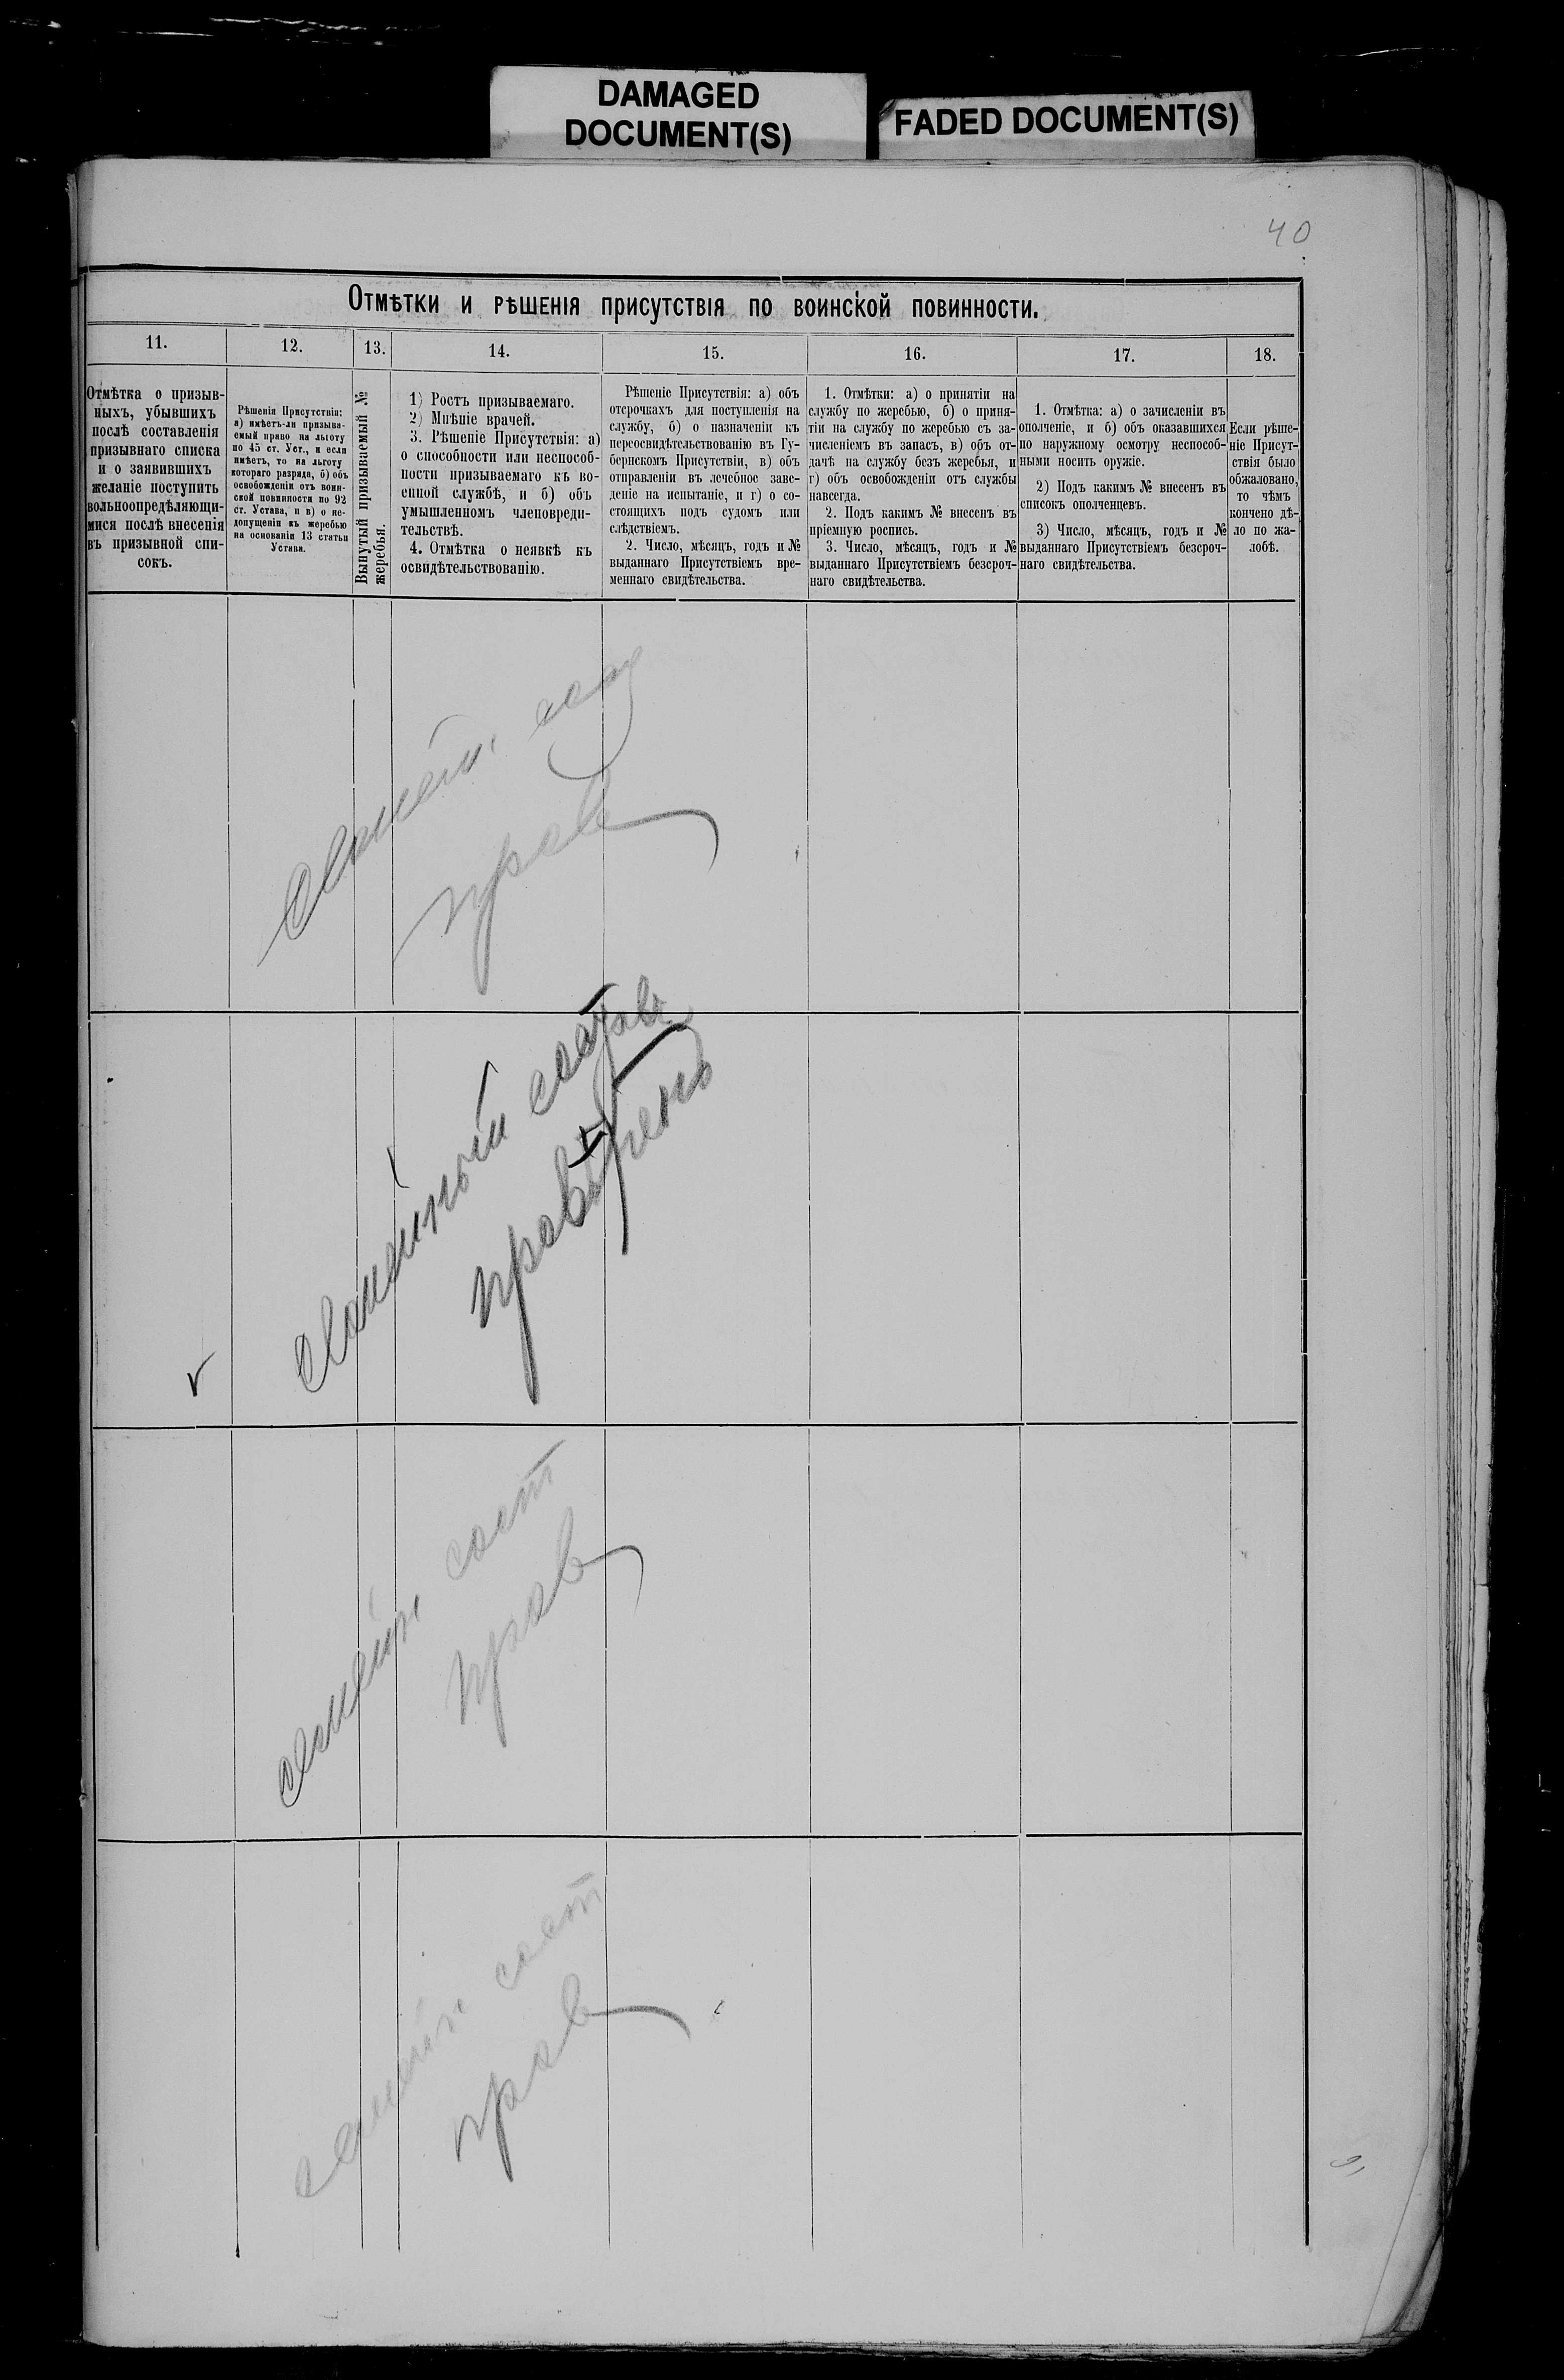 DAMAGED
DOCUMENT(S)
FADED DOCUMENT(S)
40
Отмѣтки и рѣшенія присутствія по воинской повинности.
11.
12.
13.
14.
15.
16.
17.
18.
Отмѣтка о призыв-
ныхъ, убывшихъ
послѣ составленія
призывнаго списка
и о заявившихъ
желаніе поступить
вольноопредѣляющи-
мися послѣ внесенія
въ призывной спи-
сокъ.
Рѣшенія Присутствія:
а) имѣетъ-ли призыва-
емый право на льготу
по 45 ст. Уст., и если
имѣетъ, то на льготу
котораго разряда, б) объ
освобожденіи отъ воин-
ской повинности по 92
ст. Устава, и в) о не-
допущеніи къ жеребью
на основаніи 13 статьи
Устава.
Вынутый призываемый №
жеребья.
1) Ростъ призываемаго.
2) Мнѣніе врачей.
3. Рѣшеніе Присутствія: а)
о способности или неспособ-
ности призываемаго къ во-
енной службѣ, и б) объ
умышленномъ членовреди-
тельствѣ.
4. Отмѣтка о неявкѣ къ
освидѣтельствованію.
Рѣшеніе Присутствія: а) объ
отсрочкахъ для поступленія на
службу, б) о назначеніи къ
переосвидѣтельствованію въ Гу-
бернскомъ Присутствіи, в) объ
отправленіи въ лечебное заве-
деніе на испытаніе, и г) о со-
стоящихъ подъ судомъ или
слѣдствіемъ.
2. Число, мѣсяцъ, годъ и №
выданнаго Присутствіемъ вре-
меннаго свидѣтельства.
1. Отмѣтки: а) о принятіи на
службу по жеребью, б) о приня-
тіи на службу по жеребью съ за-
численіемъ въ запасъ, в) объ от-
дачѣ на службу безъ жеребья, и
г) объ освобожденіи отъ службы
навсегда.
2. Подъ какимъ № внесенъ въ
пріемную роспись.
3. Число, мѣсяцъ, годъ и №
выданнаго Присутствіемъ безсроч-
наго свидѣтельства.
1. Отмѣтка: а) о зачисленіи въ
ополченіе, и б) объ оказавшихся
по наружному осмотру неспособ-
ными носить оружіе.
2) Подъ какимъ № внесенъ въ
списокъ ополченцевъ.
3) Число, мѣсяцъ, годъ и №
выданнаго Присутствіемъ безсроч-
наго свидѣтельства.
Если рѣше-
ніе Присут-
ствія было
обжаловано,
то чѣмъ
кончено дѣ-
ло по жа-
лобѣ.
семейн.
пров
семейный состав
провѣренъ
семейн. сост
пров
семейн. сост
пров